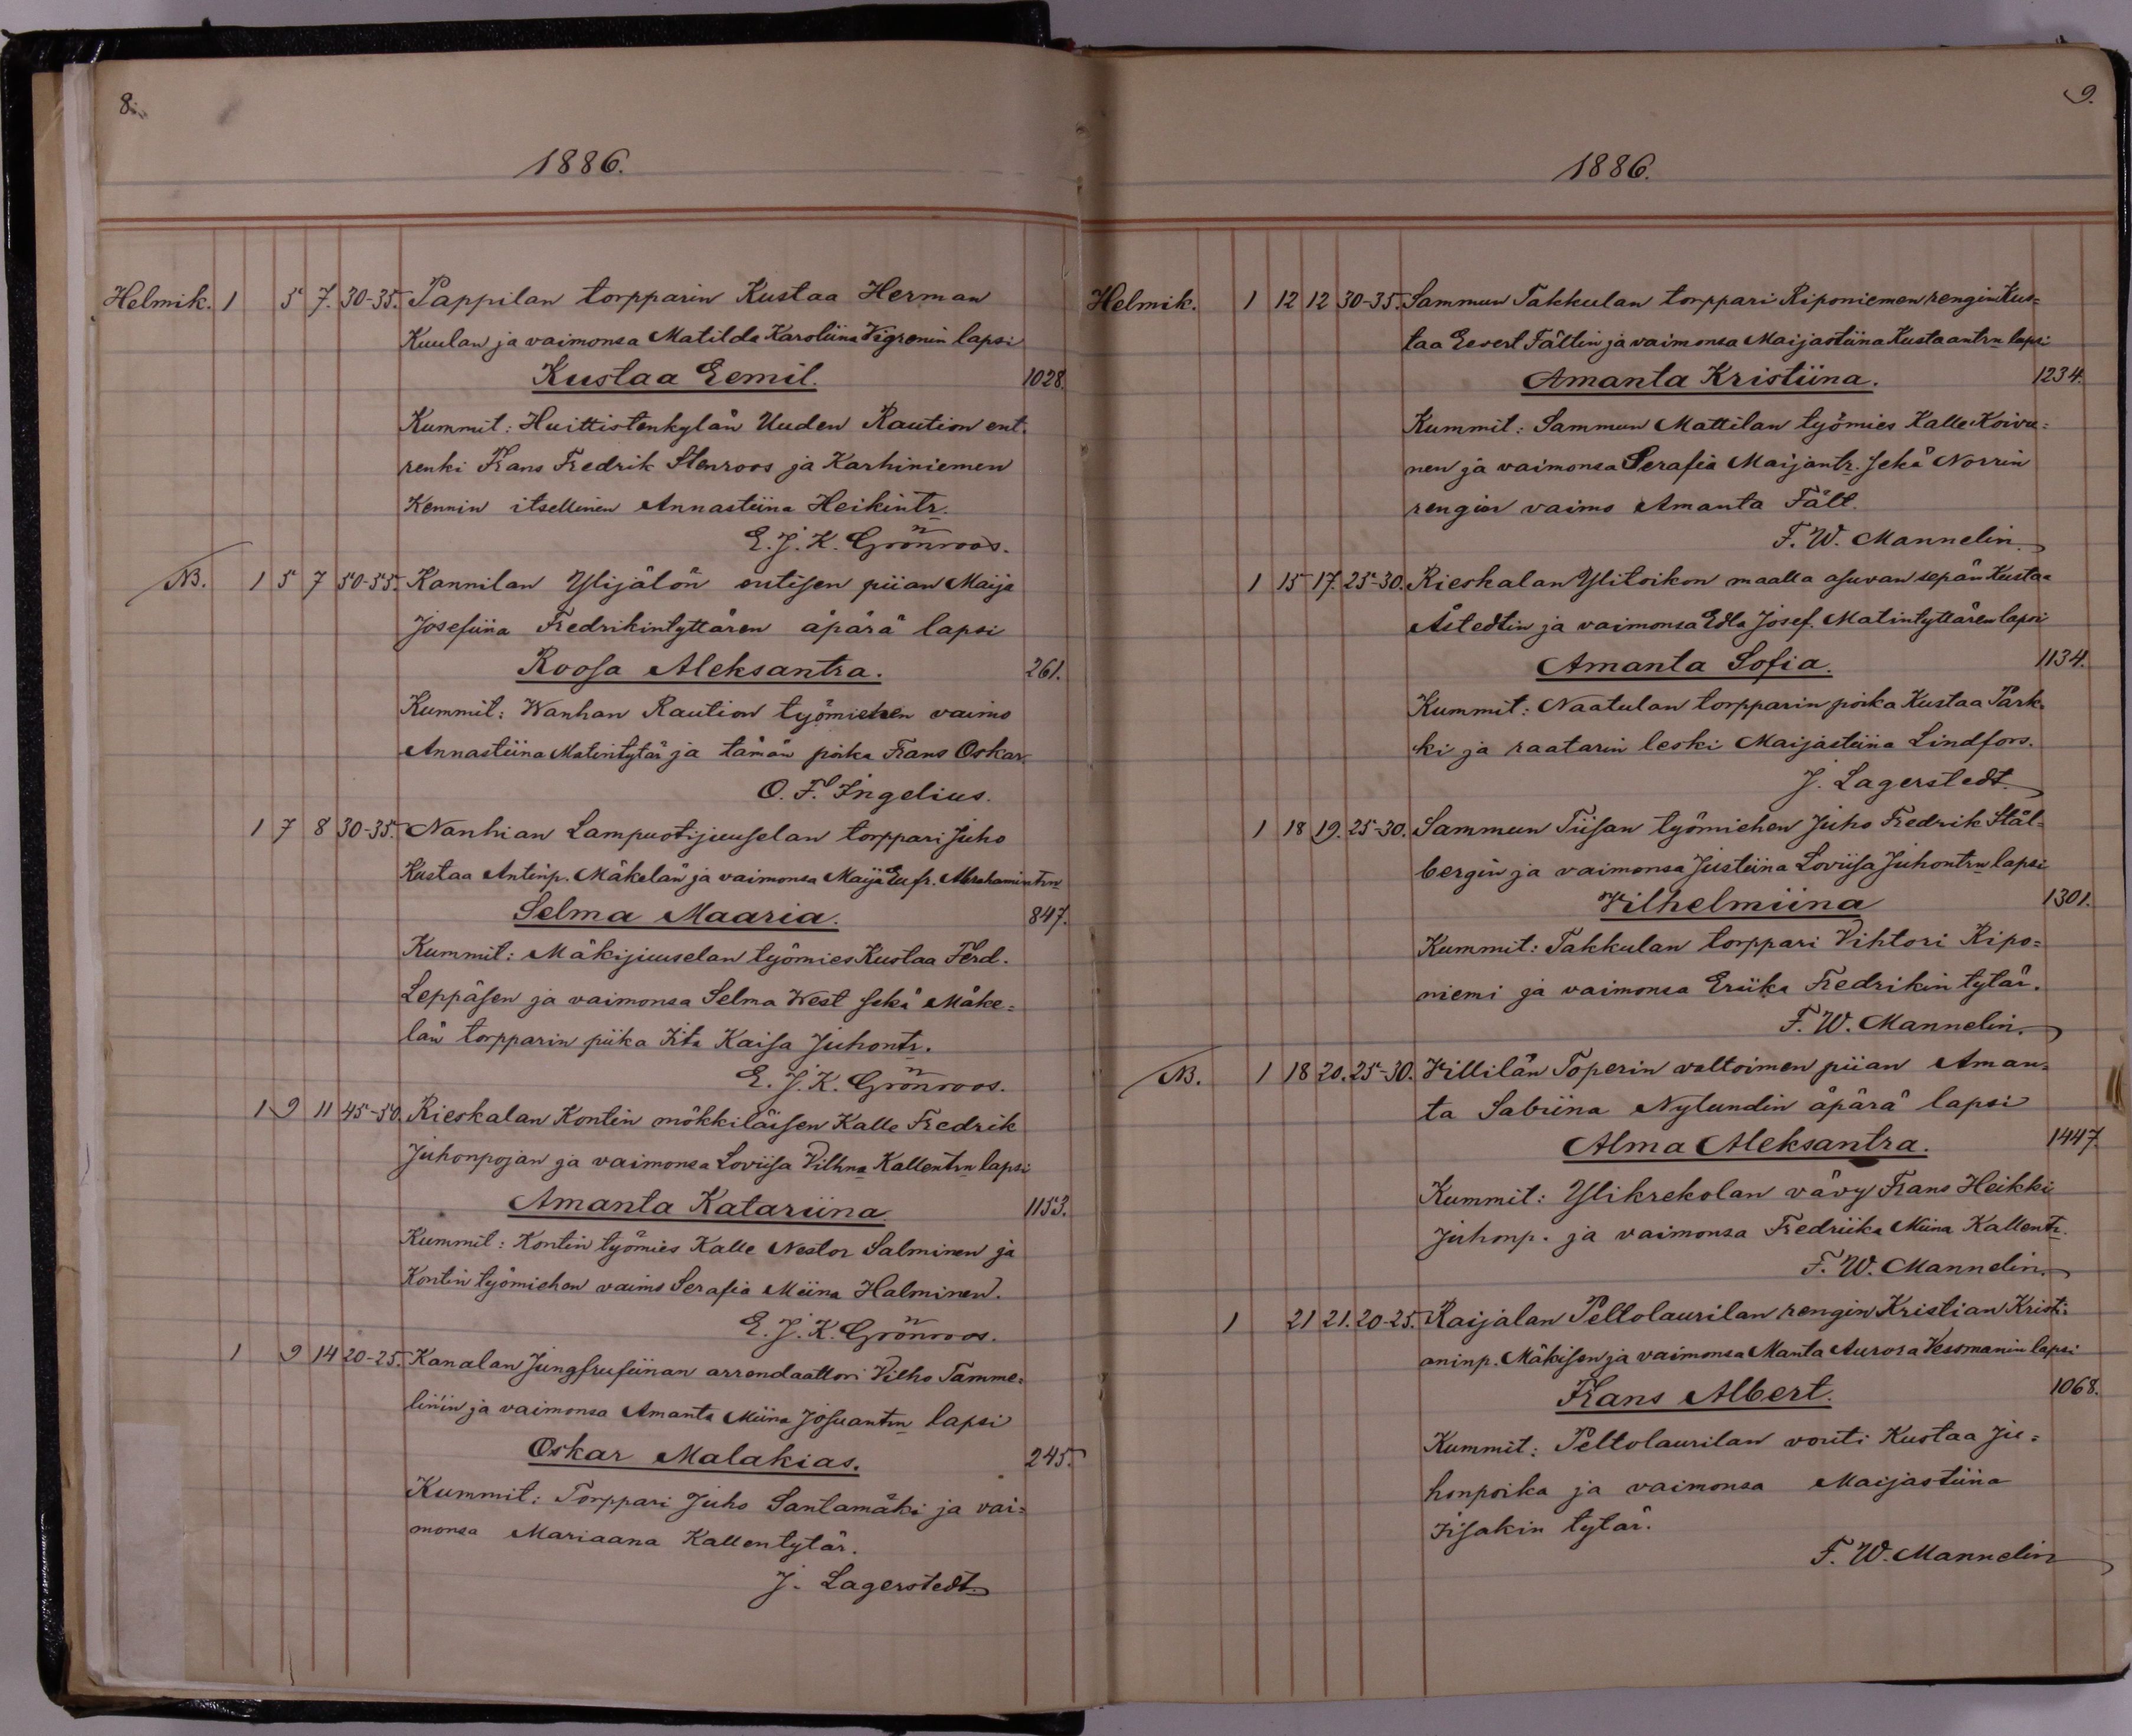 8.
1886.
Helmik. 1 5 7. 30-35. Pappilan torpparin Kustaa Herman
Kuulan ja vaimonsa Matilda Karoliina Vigrenin lapsi
Kustaa Eemil. 1028.
Kummit: Huittistenkylän Uuden Raution ent.
renki Frans Fredrik Stenroos ja Karhiniemen
Kennin itsellinen Annastiina Heikintr.
E. J. K. Grönroos.
NB. 1 5 7 50-55. Kannilan Ylijälön entisen piian Maija
Josefiina Fredrikintyttären äpärä lapsi
Roosa Aleksantra. 261.
Kummit: Wanhan Raution työmiehen vaimo
Annastiina Matintytär ja tämän poika Frans Oskar.
O. F. Ingelius.
1 7 8 30-35. Nanhian Lampuotijuuselan torppari Juho
Kustaa Antinp. Mäkelän ja vaimonsa Maija Eufr. Abrahamintrn
Selma Maaria. 847.
Kummit: Mäkijuuselan työmies Kustaa Ferd.
Leppäsen ja vaimonsa Selma West sekä Mäke=
län torpparin piika Iita Kaisa Juhontr.
E. J. K. Grönroos.
1 9 11 45-50. Rieskalan Kontin mökkiläisen Kalle Fredrik
Juhonpojan ja vaimonsa Loviisa Vilhna Kallentrn lapsi
Amanta Katariina 1153.
Kummit: Kontin työmies Kalle Nestor Salminen ja
Kontin työmiehen vaimo Serafia Miina Halminen.
E. J. K. Grönroos.
1 9 14 20-25. Kanalan Jungfrufiinan arrendaattori Vilho Tamme=
linin ja vaimonsa Amanta Miina Josuantrn lapsi
Oskar Malakias. 245.
Kummit: Torppari Juho Santamäki ja vai=
monsa Mariaana Kallentytär.
J. Lagerstedt.
9.
1886.
Helmik. 1 12 12 30-35. Sammun Takkulan torppari Riponiemen rengin Kus=
taa Evert Fältin ja vaimonsa Maijastiina Kustaantrn lapsi
Amanta Kristiina. 1234.
Kummit: Sammun Mattilan työmies Kalle Koivu=
nen ja vaimonsa Serafia Maijantr. sekä Norrin
rengin vaimo Amanta Fält.
F. W. Mannelin.
1 15 17. 25-30. Rieskalan Ylitoikon maalla asuvan sepän Kustaa
Åstedtin ja vaimonsa Edla Josef. Matintyttären lapsi
Amanta Sofia. 1134.
Kummit: Naatulan torpparin poika Kustaa Park=
ki ja raatarin leski Maijastiina Lindfors.
J. Lagerstedt.
1 18 19. 25-30. Sammun Tiisan työmiehen Juho Fredrik Stål=
bergin ja vaimonsa Justiina Loviisa Juhontrn lapsi
Vilhelmiina 1301.
Kummit: Takkulan torppari Vihtori Ripo=
niemi ja vaimonsa Eriika Fredrikin tytär.
F. W. Mannelin.
NB. 1 18 20. 25-30. Villilän Toperin valtoimen piian Aman=
ta Sabiina Nylundin äpärä lapsi
Alma Aleksantra. 1447
Kummit: Ylikrekolan vävy Frans Heikki
Juhonp. ja vaimonsa Fredriika Miina Kallentr.
F. W. Mannelin.
1 21 21. 20-25. Raijalan Peltolaurilan rengin Kristian Kristi=
aninp. Mäkisen ja vaimonsa Manta Aurora Vessmanin lapsi
Frans Albert. 1068.
Kummit: Peltolaurilan vouti Kustaa Ju=
honpoika ja vaimonsa Maijastiina
Iisakin tytär.
F. W. Mannelin